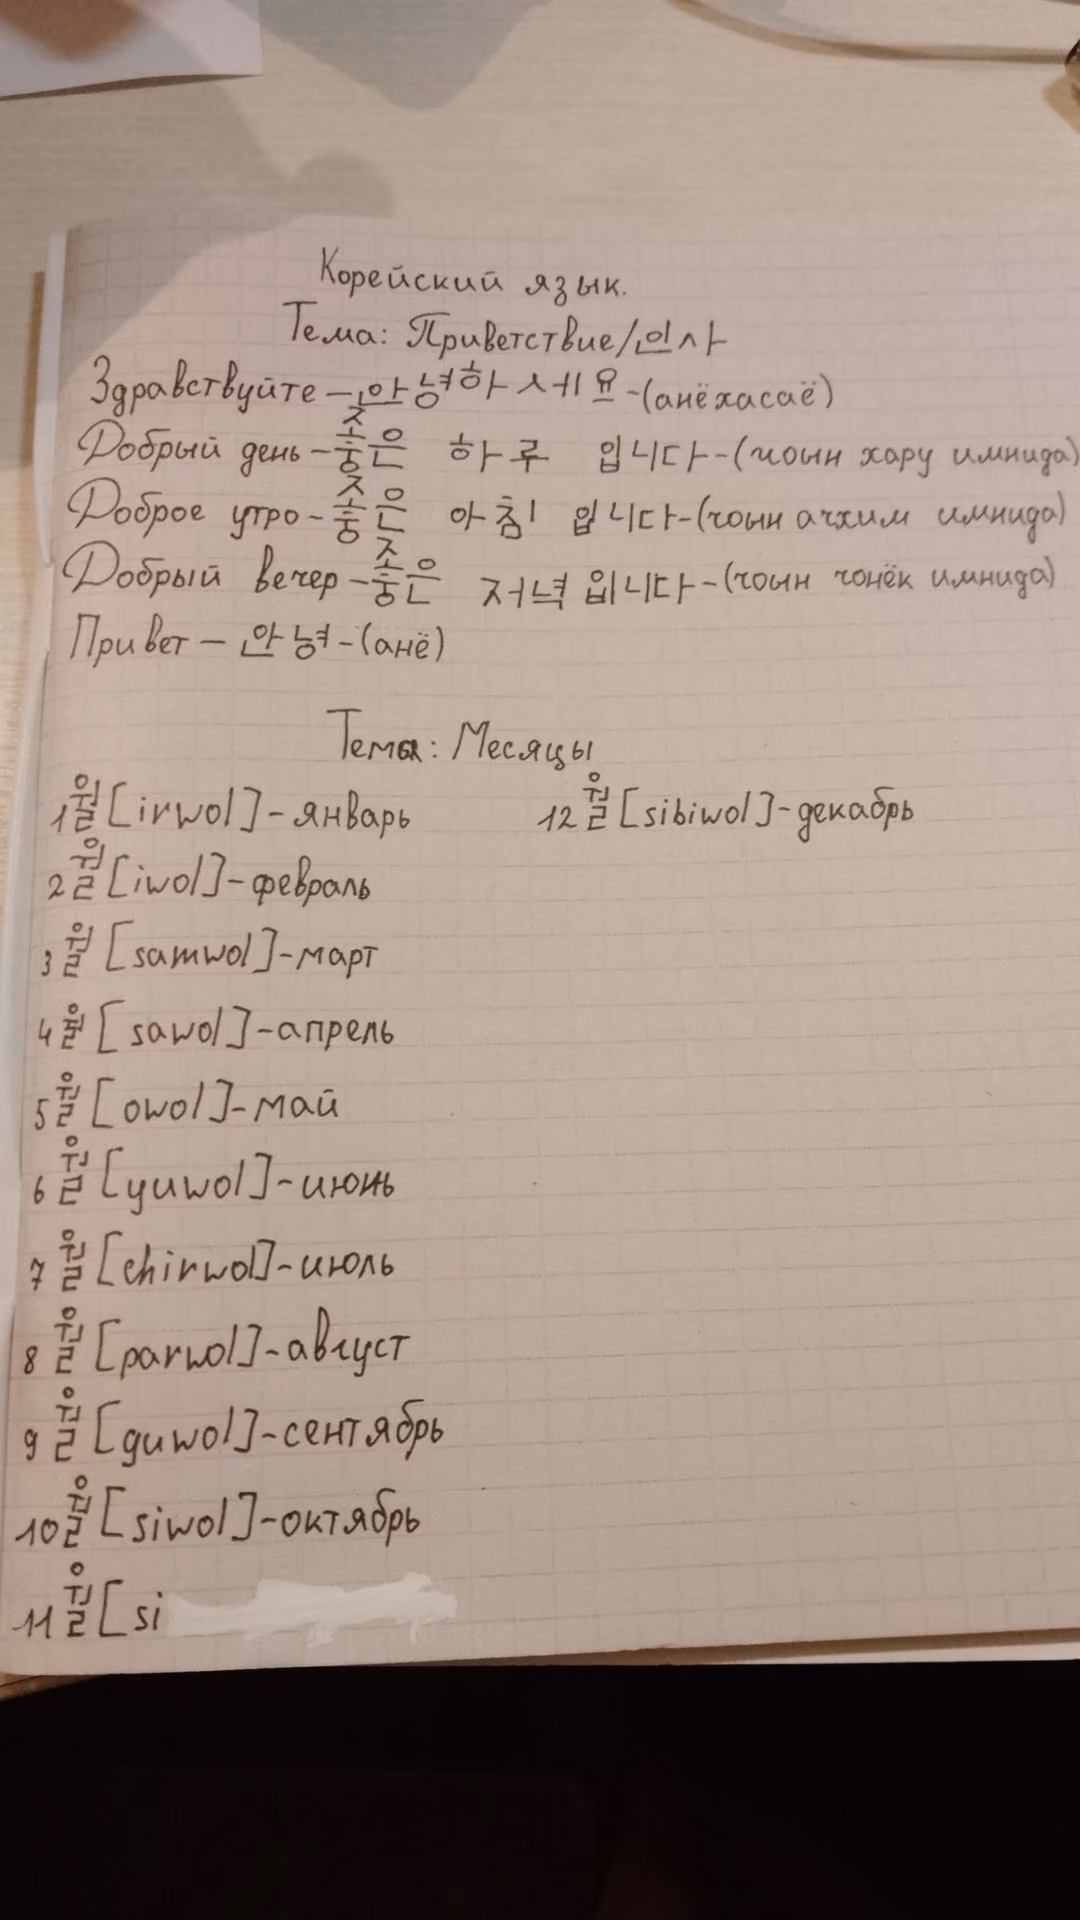 Корейский язык.
Тема: Приветствие/인사
Здравствуйте – 안녕하세요 – (анёхасаё)
Добрый день – 좋은 하루 입니다 – (чоын хару имнида)
Доброе утро – 좋은 아침 입니다 – (чоын ачхим имнида)
Добрый вечер – 좋은 저녁 입니다 – (чоын чонёк имнида)
Привет – 안녕 – (анё)
Тема: Месяцы
1월 [irwol] – январь
2월 [iwol] – февраль
3월 [samwol] – март
4월 [sawol] – апрель
5월 [owol] – май
6월 [yuwol] – июнь
7월 [chirwol] – июль
8월 [parwol] – август
9월 [guwol] – сентябрь
10월 [siwol] – октябрь
11월 [si
12월 [sibiwol] – декабрь